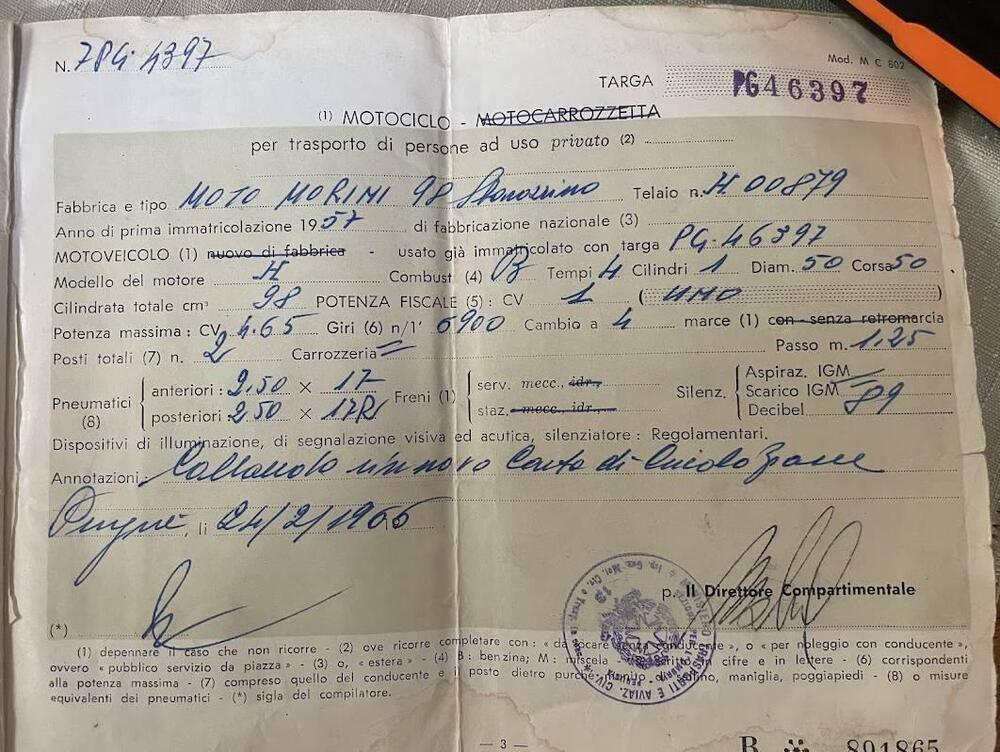 N. 7PG 4397
Mod. M C 802
TARGA PG46397
(1) MOTOCICLO - MOTOCARROZZETTA
per trasporto di persone ad uso privato (2)
Fabbrica e tipo MOTO MORINI 98 Telaio n. H 00879
Anno di prima immatricolazione 1957 di fabbricazione nazionale (3)
MOTOVEICOLO (1) nuovo di fabbrica - usato già immatricolato con targa PG-46397
Modello del motore H Combust (4) B Tempi 4 Cilindri 1 Diam. 50 Corsa 50
Cilindrata totale cm³ 98 POTENZA FISCALE (5): CV 1 ( UNO )
Potenza massima: CV 4.65 Giri (6) n/1' 6900 Cambio a 4 marce (1) con - senza retromarcia
Posti totali (7) n. 2 Carrozzeria = Passo m. 1.25
Pneumatici (8) anteriori: 2.50 × 17 Freni (1) serv. mecc., idr., Silenz. Aspiraz. IGM
posteriori: 2.50 × 17R staz. mecc., idr., Scarico IGM
Decibel 89
Dispositivi di illuminazione, di segnalazione visiva ed acutica, silenziatore: Regolamentari.
Annotazioni: Collaudo rinnovo Carta di Circolazione
li 24/2/1966
p. Il Direttore Compartimentale
(*)
(1) depennare il caso che non ricorre - (2) ove ricorre completare con: « da locare senza conducente », o « per noleggio con conducente »,
ovvero « pubblico servizio da piazza » - (3) o, « estera » - (4) B: benzina; M: miscela - (5) scritto in cifre e in lettere - (6) corrispondenti
alla potenza massima - (7) compreso quello del conducente e il posto dietro purchè munito di sellino, maniglia, poggiapiedi - (8) o misure
equivalenti dei pneumatici - (*) sigla del compilatore.
— 3 —
B 891865